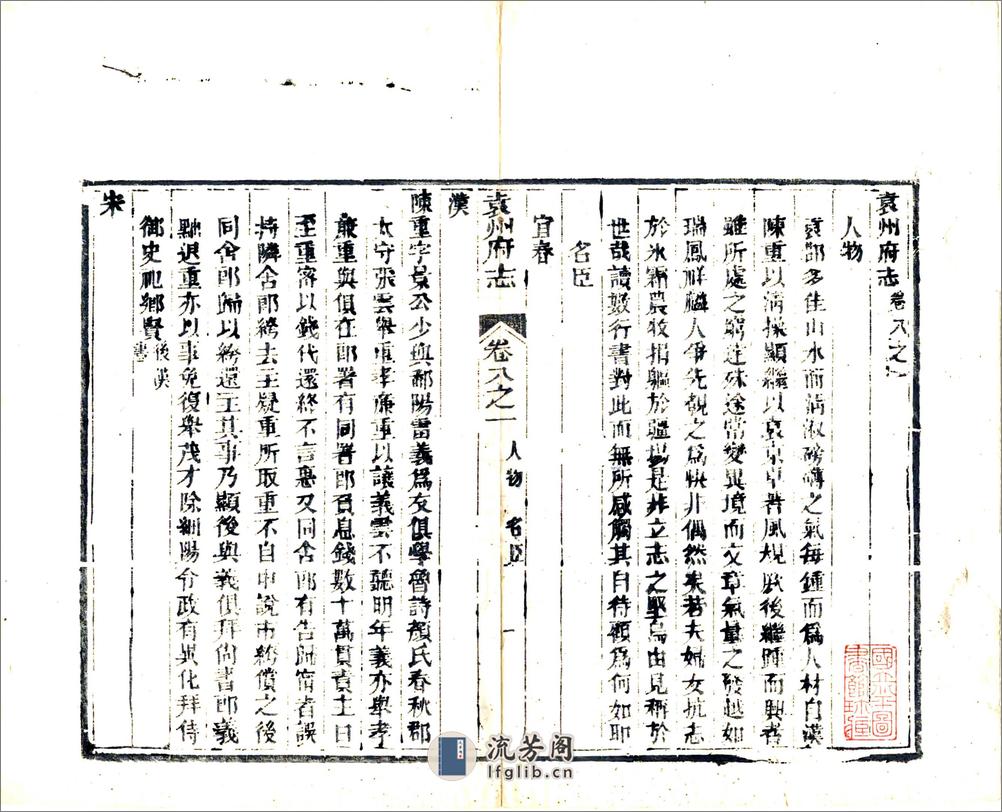 袁州府志 卷八之一
人物
袁郡多佳山水而淸淑磅礴之氣每鍾而爲人材自漢
陳重以淸操顯繼以袁京卓著風規厥後繼踵而興者
雖所處之窮達殊途常變異境而文章氣量之發越如
瑞鳳祥麟人爭先覩之爲快非偶然矣若夫婦女抗志
於氷霜農牧捐軀於疆場是非立志之堅烏由見稱於
世哉讀嫩行書對此而無所感觸其自待顧爲何如耶
名臣
宜春
袁州府志 卷八之一 人物 名臣 一
漢
陳重字景公少與鄱陽雷義爲友俱學魯詩顏氏春秋郡
太守張雲舉重孝廉重以讓義雲不聽明年義亦舉孝
廉重與俱在郎署有同署郎負息錢數十萬債主日
至重密以錢代還終不言惠又同舍郎有告歸寗者誤
持隣舍郎絝去主疑重所取重不自申說市絝償之後
同舍郎歸以絝還主其事乃顯後與義俱拜尙書郎義
黜退重亦以事免復舉茂才除細陽令政有異化拜侍
御史祀鄉賢 後漢書
宋
國立北平圖書館珍藏
流芳阁
lfglib.cn